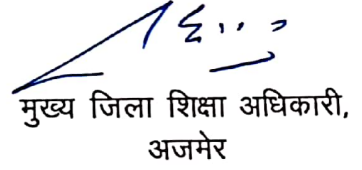 मुख्य जिला शिक्षा अधिकारी,
अजमेर